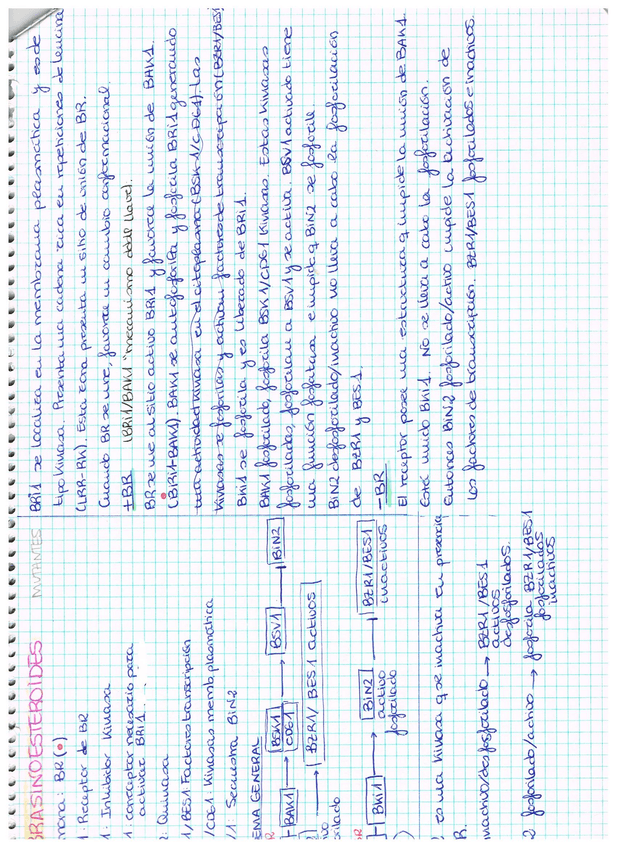 BRASINOESTEROIDES MUTANTES
mona: BR(•)
1: Receptor de BR
1: Inhibidor Kinasa
1: correceptor necesario para
activar BRI1.
2: Quinasa
1/BES1 Factores transcripción
/CDG1: Kinasas memb plasmática
/1: Secuestra BiN2
EMA GENERAL
BAK1 → BSK1 CDG1 → BSV1 BiN2
→ BZR1/BES1 activos
Bki1 → BiN2 activo fosforilado BZR1/BES1 inactivos
es una kinasa q se inactiva en presencia
R.
inactivo/desfosforilado → BZR1/BES1
activos
desfosforilados.
2 fosforilado/activo → fosforila BZR1/BES1
fosforilados
inactivos
BRI1 se localiza en la membrana plasmática y es de
tipo Kinasa. Presenta una cadena rica en repeticiones de leucina
(LRR-RK). Esta zona presenta un sitio de unión de BR.
Cuando BR se une, favorece un cambio conformacional
+BR (BRI1/BAK1 "mecanismo doble llave).
BR se une al sitio activo BRI1 y favorece la unión de BAK1.
(BRI1-BAK1). BAK1 se autofosforila y fosforila BRI1 generando
actividad kinasa en el citoplasma (BSK-1/CDG1). Las
kinasas se fosforilan y activan factores de transcripción (BZR1/BES1
BKi1 se fosforila y es liberado de BRI1.
BAK1 fosforilado, fosforila BSK1/CDG1 Kinasas. Estas kinasas
fosforiladas, fosforilan a BSV1 y se activa. BSV1 activado tiene
una función fosfatasa e impide q BiN2 se fosforile
BiN2 desfosforilado/inactivo no lleva a cabo la fosforilación
de BZR1 y BES1.
-BR
El receptor posee una estructura q impide la unión de BAK1.
Está unido BKi1. No se lleva a cabo la fosforilación.
Entonces BiN2 fosforilado/activo impide la activación de
los factores de transcripción. BZR1/BES1 fosforilados e inactivos.